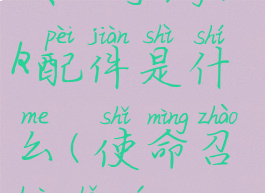 pèi jiàn shì shí
配件是什
me shǐ mìng zhào
么(使命召